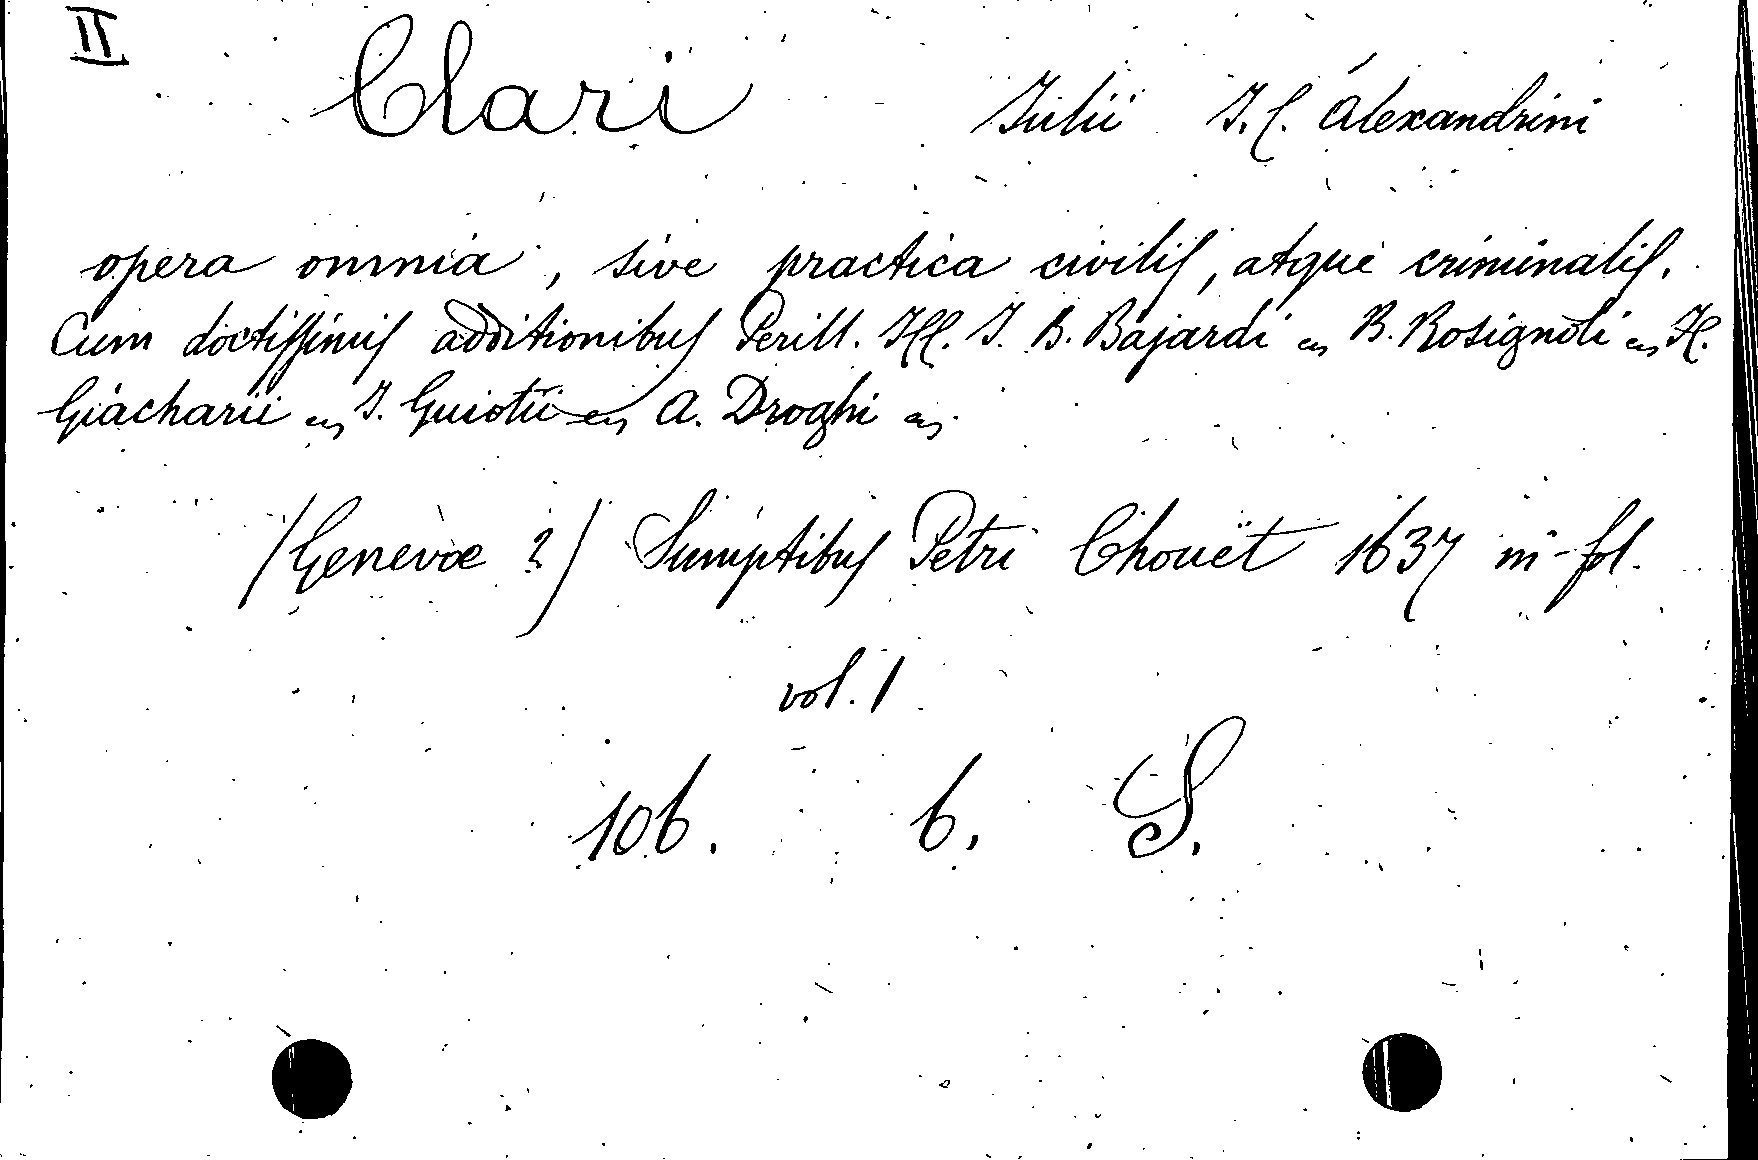 II
Clari Julii J. C. Alexandrini
opera omnia, sive practica civilis, atque criminalis.
Cum doctissimis additionibus Perill. JCC. J. B. Bajardi B. Rosignoli H.
Giacharii J. Guiotii A. Droghi
(Genevæ ?) Sumptibus Petri Chouët 1637 in-fol.
vol. 1
106. 6. S.